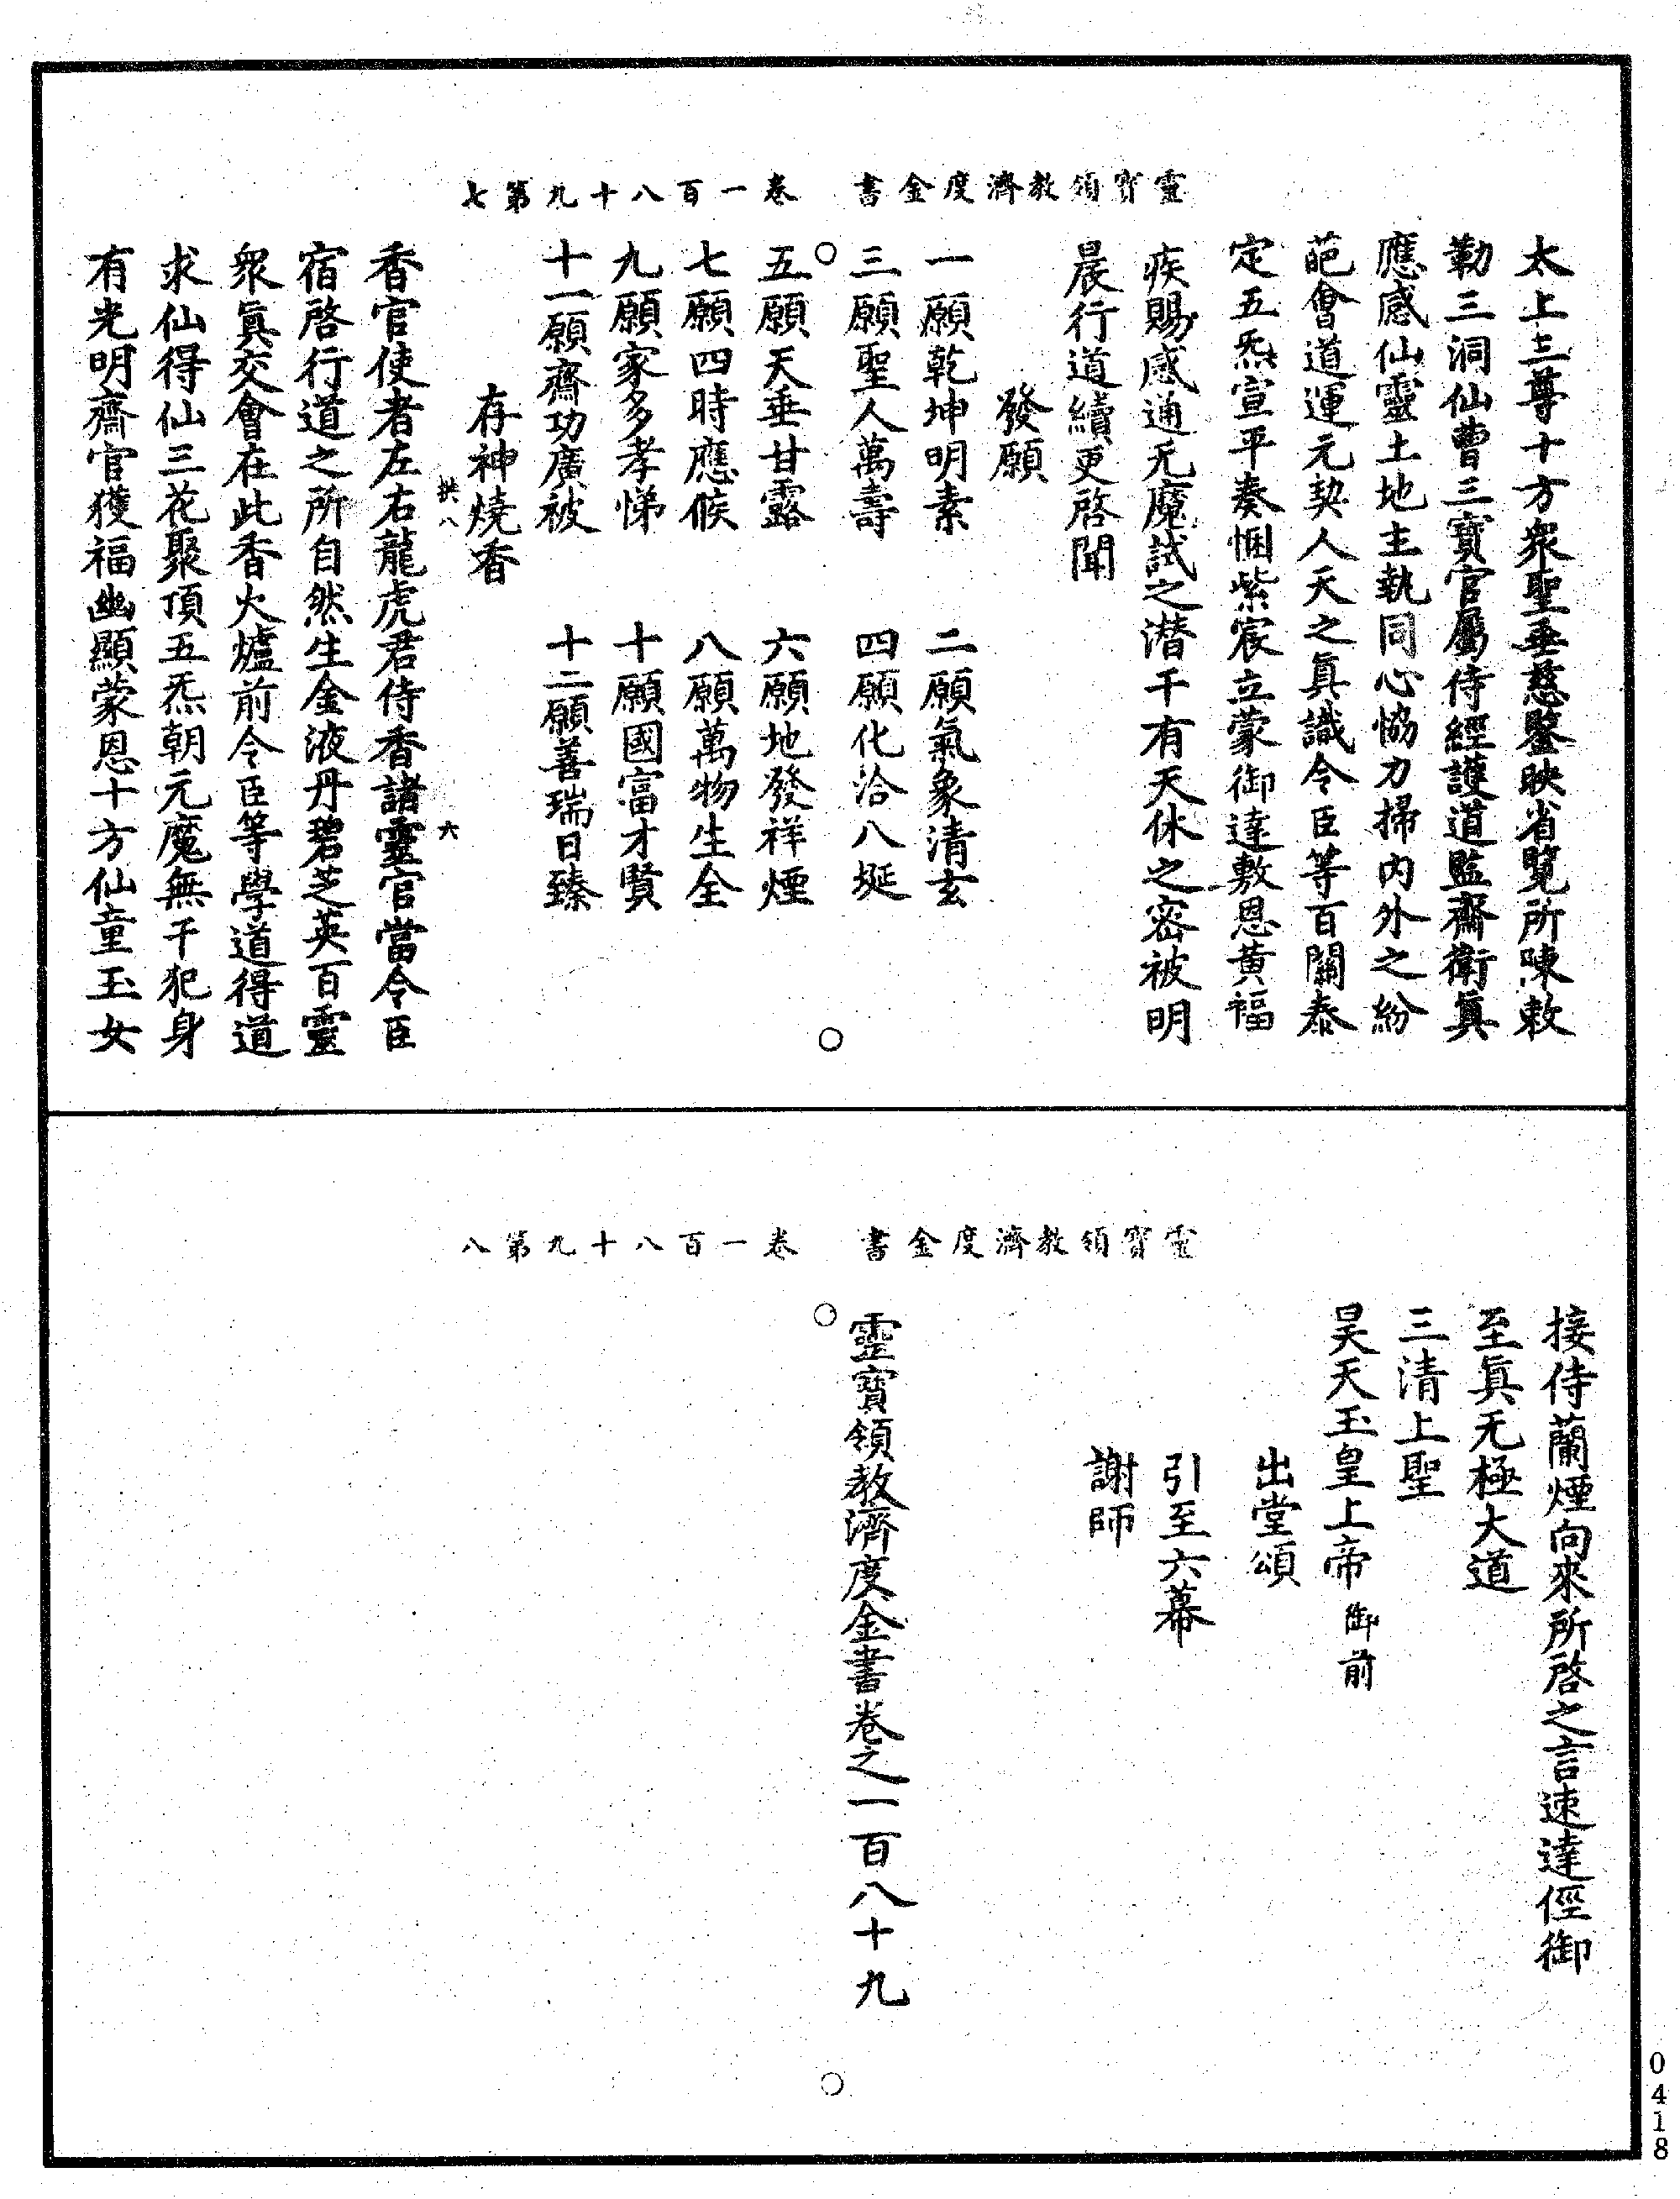 靈寶領教濟度金書　卷一百八十九第七
太上三尊十方衆聖垂慈鑒映省覽所陳敕
勒三洞仙曹三寶官屬侍經護道監齋衛眞
應感仙靈土地主執同心恊力掃内外之紛
葩會道運元契人天之眞識令臣等百關泰
定五炁宣平奏悃紫宸立蒙御達敷恩黃福
疾賜感通无魔試之潛干有天休之密被明
晨行道續更啓聞
發願
一願乾坤明素　二願氣象清玄
三願聖人萬壽　四願化洽八埏
五願天垂甘露　六願地發祥煙
七願四時應候　八願萬物生全
九願家多孝悌　十願國富才賢
十一願齋功廣被　十二願善瑞日臻
存神燒香
拱八　六
香官使者左右龍虎君侍香諸靈官當令臣
宿啓行道之所自然生金液丹碧芝英百靈
衆眞交會在此香火爐前令臣等學道得道
求仙得仙三花聚頂五炁朝元魔無干犯身
有光明齋官獲福幽顯蒙恩十方仙童玉女
靈寶領教濟度金書　卷一百八十九第八
接侍蘭煙向來所啓之言速達徑御
至眞无極大道
三清上聖
昊天玉皇上帝御前
出堂頌
引至六幕
謝師
靈寶領教濟度金書卷之一百八十九
0418